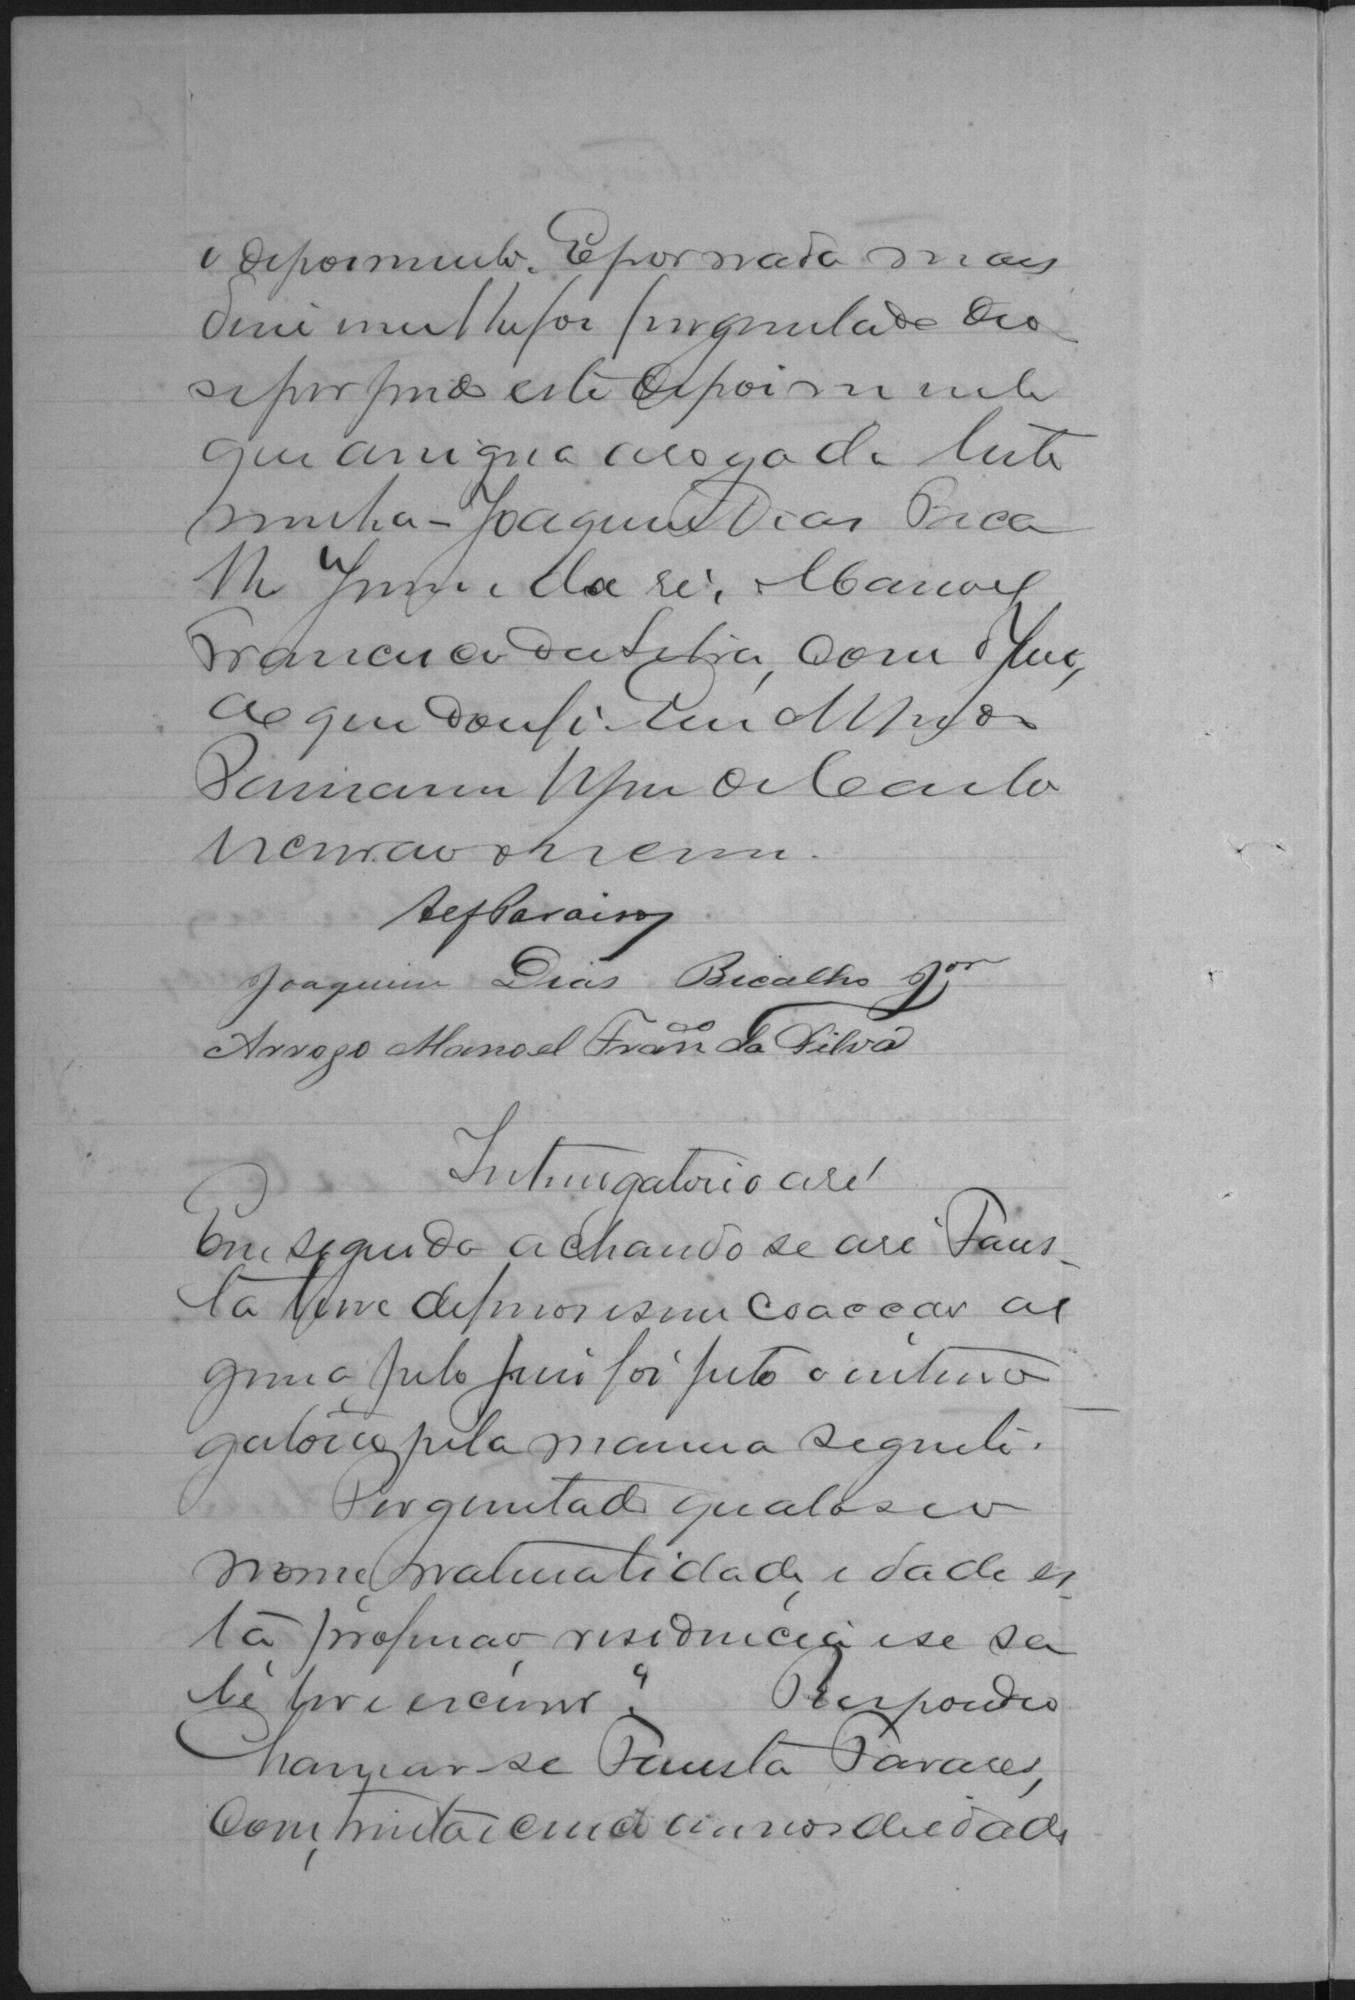 o depoimento. E por nada mais
dizer nem lhe foi perguntado deu
se por findo este depoimento
que assigna a rogo da teste
munha - Joaquim Dias Bica
lho Junior e da ré, Manoel
Francisco da Silva, com o Juiz,
do que dou fé. Eu
escrivão o escrevi.
Joaquim Dias Bicalho Jor
Arrogo Manoel Franco da Silva
Interrogatorio a ré
Em seguida achando se a ré Faus-
ta livre de ferros e sem coacção al
guma, pelo juiz foi feito o interro
gatorio pela maneira seguinte.
Perguntado qual o seu
nome, naturalidade, edade, es-
tado, profissão, residencia e se sa
be ler e escrever? Respondeu
Chamar-se Fausta Tavares,
com trinta e cinco annos de edade